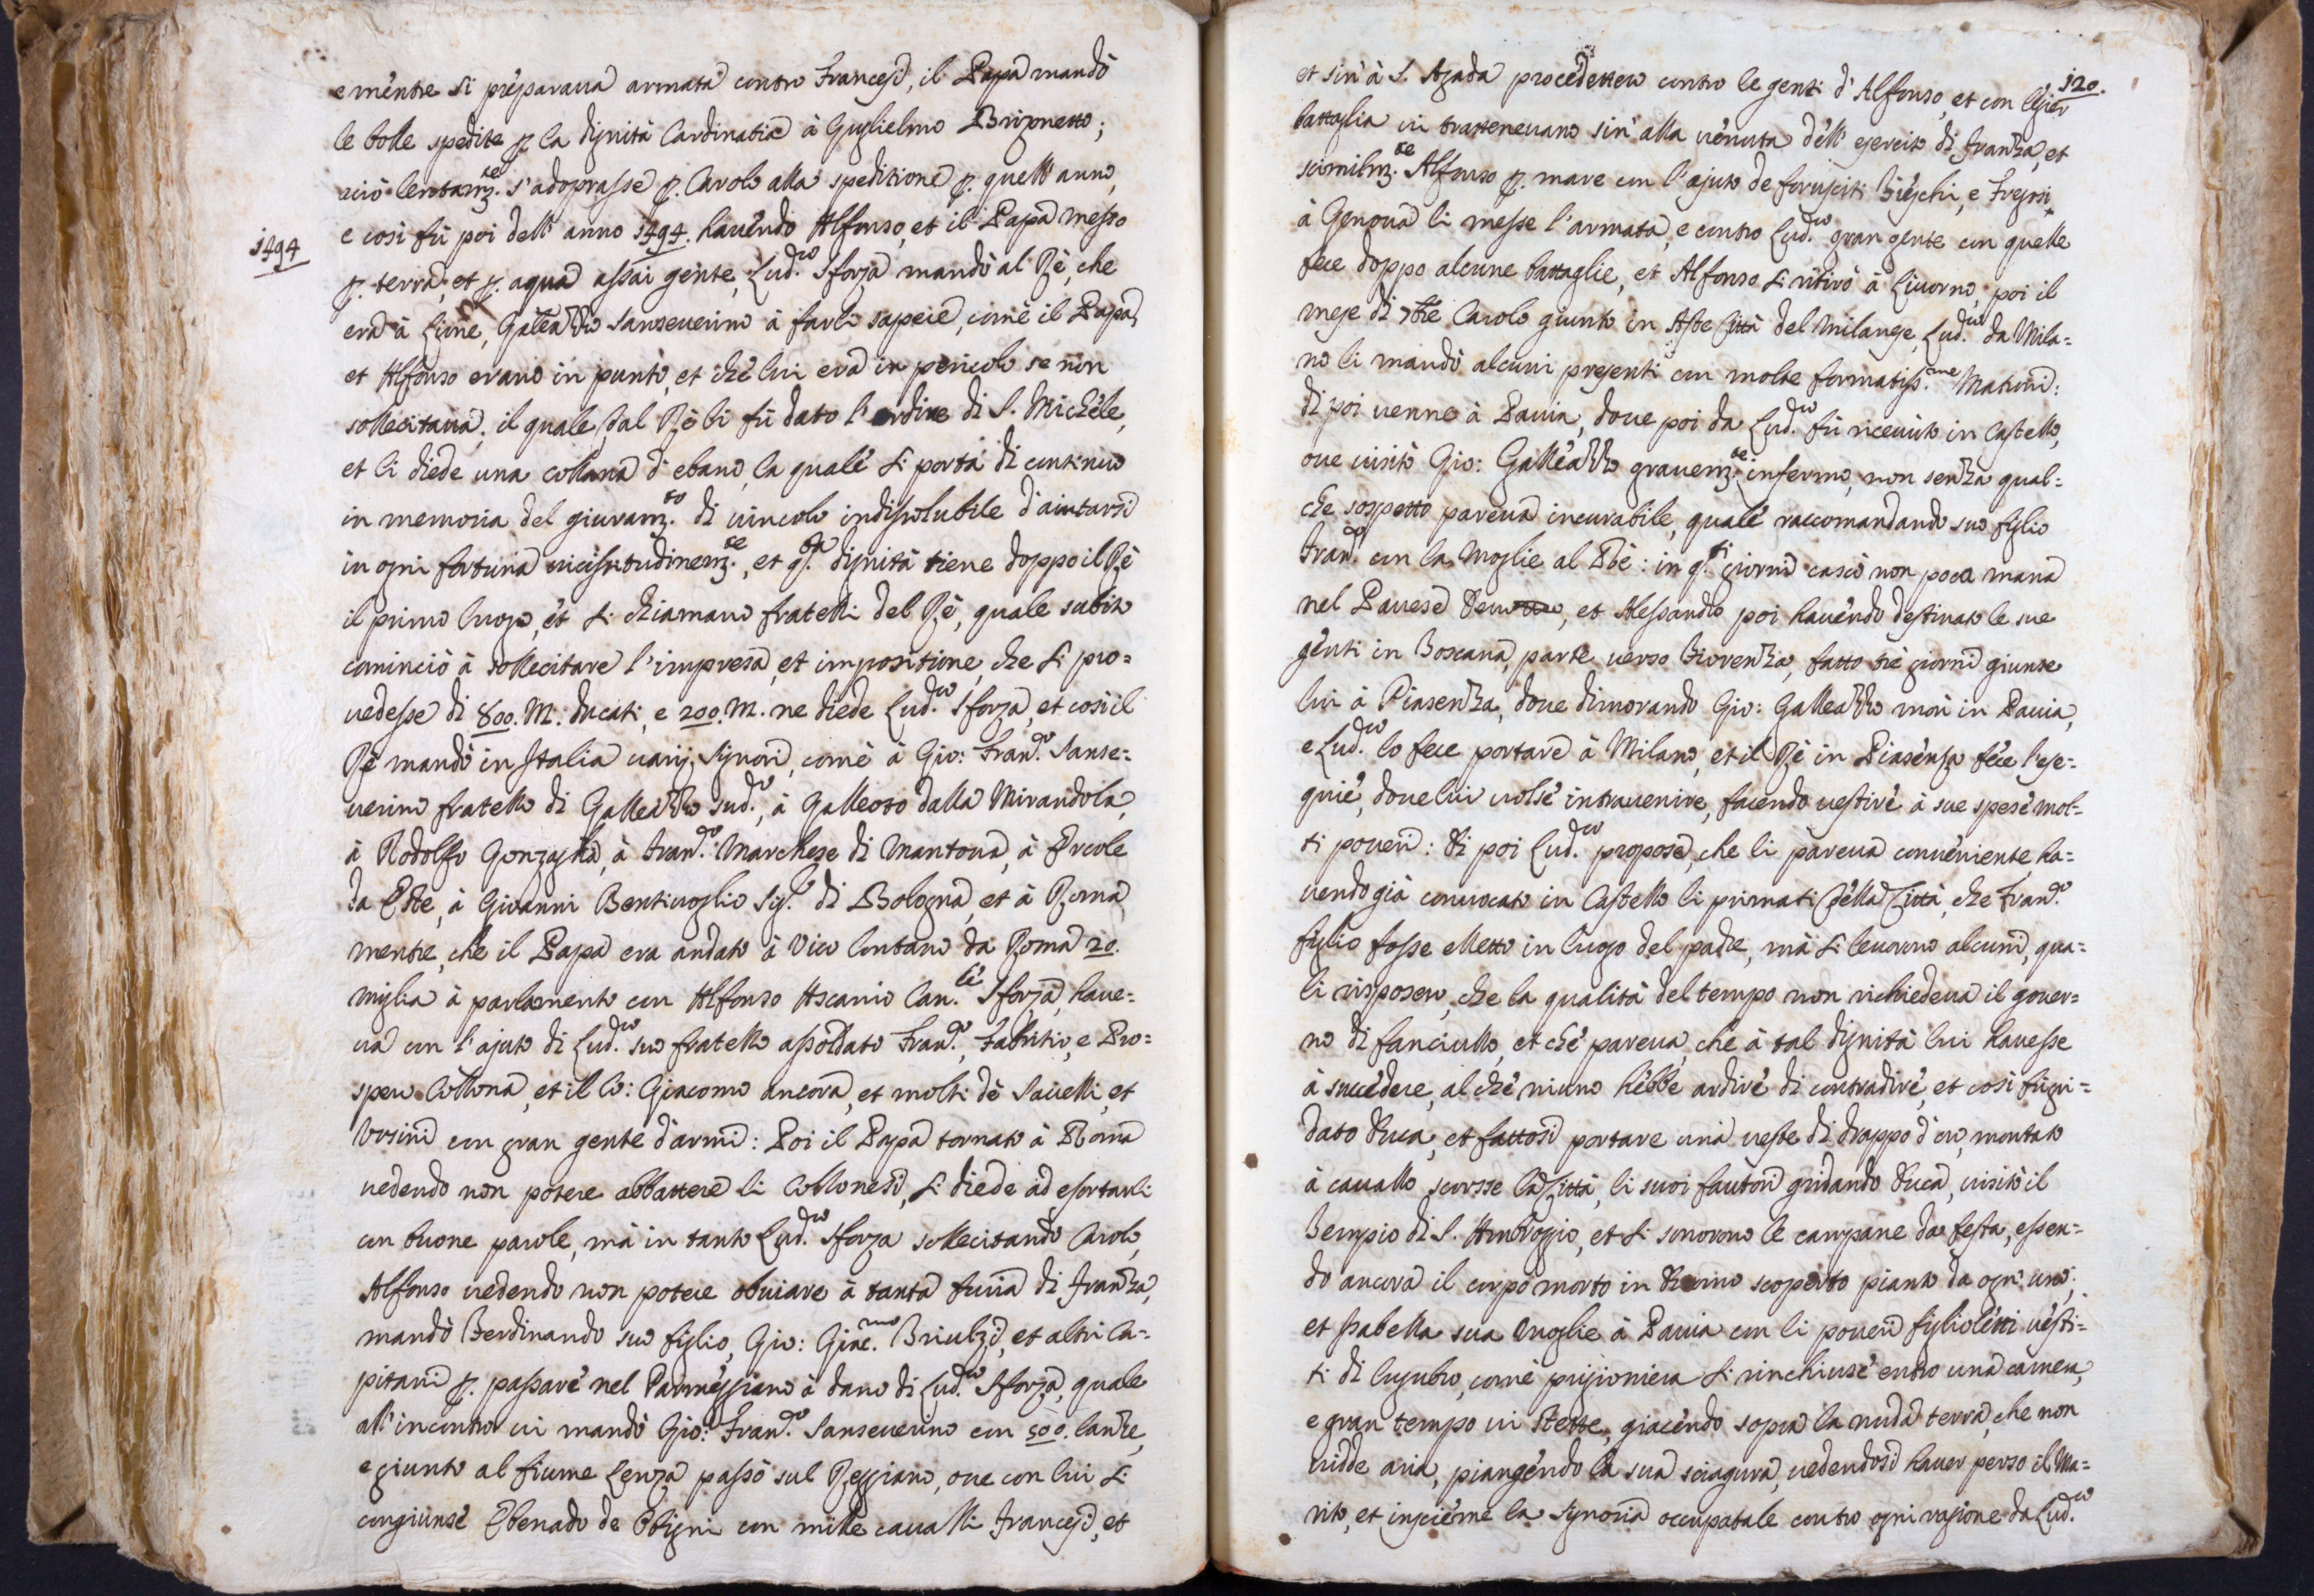 e mentre si preparaua armata contro Francesi, il Papa mandò
le bolle spedite p. la dignità Cardinatia à Guglielmo Brisonetto;
acciò lentam.te s'adoprasse p. Carolo alla speditione p. quell'anno,
e così fù poi dell'anno 1494. hauendo Alfonso, et il Papa messo
1494
p. terra, et p. aqua assai gente, Lud.co Sforza mandò al Rè, che
era à Lione, Galeazzo Sanseuerino à farli sapere, come il Papa,
et Alfonso erano in punto, et che lui era in pericolo se non
sollecitaua, il quale dal Rè li fù dato l'ordine di S. Michele,
et li diede una collana d'ebano, la quale si porta di continuo
in memoria del giuram.to di uincolo indissolubile d'aiutarsi
in ogni fortuna uicissitudinem.te, et q.sta dignità tiene doppo il Rè
il primo luogo, et si chiamano fratelli del Rè, quale subito
cominciò à sollecitare l'impresa, et impositione, che si pro=
uedesse di 800. M. ducati, e 200. M. ne diede Lud.co Sforza, et così il
Rè mandò in Italia uarij Signori, come à Gio: Fran.co Sanse=
uerino fratello di Galleazzo sud.o, à Galleoto dalla Mirandola,
à Rodolfo Gonzagha, à Fran.co Marchese di Mantoua, à Ercole
da Este, à Giouanni Bentiuoglio Sig.r di Bologna, et à Roma
mentre, che il Papa era andato à Vico lontano da Roma 20.
miglia à parlamento con Alfonso Ascanio Car.le Sforza, haue=
ua con l'ajuto di Lud.co suo fratello assoldato Fran.co, Fabritio, e Pro=
spero Collona, et il Co: Giacomo ancora, et molti de Sauelli, et
Vrsini con gran gente d'armi: Poi il Papa tornato à Roma
uedendo non potere abbattere li Collonesi, si diede ad esortarli
con buone parole, mà in tanto Lud.co Sforza sollecitando Carolo,
Alfonso uedendo non potere obuiare à tanta furia di Franza,
mandò Ferdinando suo figlio, Gio: Giac.mo Triulzi, et altri Ca=
pitani p. passare nel Parmeggiano à dano di Lud.co Sforza, quale
all'incontro ui mandò Gio: Fran.co Sanseuerino con 500. lanze,
e giunto al fiume Lenza passò sul Reggiano, oue con lui si
congiunse Ebenado de Obigni con mille caualli Francesi, et
120.
et sin' à S. Agada procedettero contro le genti d'Alfonso, et con legier
battaglia ui tratteneuano sin' alla uenuta dell'esercito di Franza, et
similm.te Alfonso p. mare con l'ajuto de forusciti Fieschi, e Fregosi,
à Genoua li messe l'armata, e contro Lud.co gran gente con quelle
fece doppo alcune battaglie, et Alfonso si ritirò à Liuorno, poi il
mese di 7bre Carolo giunto in Aste Città del Milanese, Lud.co da Mila=
no li mandò alcuni presenti con molte formosiss.me Matroni:
di poi uenne à Pauia, doue poi da Lud.co fù riceuuto in Castello,
oue uisitò Gio: Galleazzo grauem.te infermo, non senza qual=
che sospetto pareua incurabile, quale raccomandando suo figlio
Fran.co con la Moglie al Rè: in q.ti giorni cascò non poca mana
nel Pauese, et Alessandro poi hauendo destinato le sue
genti in Toscana, parte uerso Fiorenza, fatto trè giorni giunse
lui à Piasenza, doue dimorando Gio: Galleazzo morì in Pauia,
e Lud.co lo fece portare à Milano, et il Rè in Piasenza fece l'ese=
quie, doue lui uolse intrauenire, facendo uestire à sue spese mol=
ti poueri: di poi Lud.co propose, che li pareua conueniente, ha=
uendo già conuocato in Castello li primati della Città, che Fran.co
figlio fosse eletto in luogo del padre, mà si leuorono alcuni, qua=
li risposero, che la qualità del tempo non richiedeua il gouer=
no di fanciullo, et che pareua, che à tal dignità lui hauesse
à succedere, al che niuno hebbe ardire di contradire, et così fù gri=
dato Duca, et fattosi portare una ueste di drappo d'oro, montato
à cauallo, scorsse la Città, li suoi fautori gridando Duca, uisitò il
Tempio di S. Ambroggio, et si sonorono le campane da festa, essen=
do ancora il corpo morto in Domo scoperto pianto da ogn' uno,
et Isabella sua Moglie à Pauia con li poueri figlioletti uesti=
ti di lugubro, come prigioniera si rinchiuse entro una camera,
e gran tempo ui stette, giacendo sopra la nuda terra, che non
uidde aria, piangendo la sua sciagura, uedendosi hauer perso il Ma=
rito, et inscieme la Signoria occupatale contro ogni ragione da Lud.co